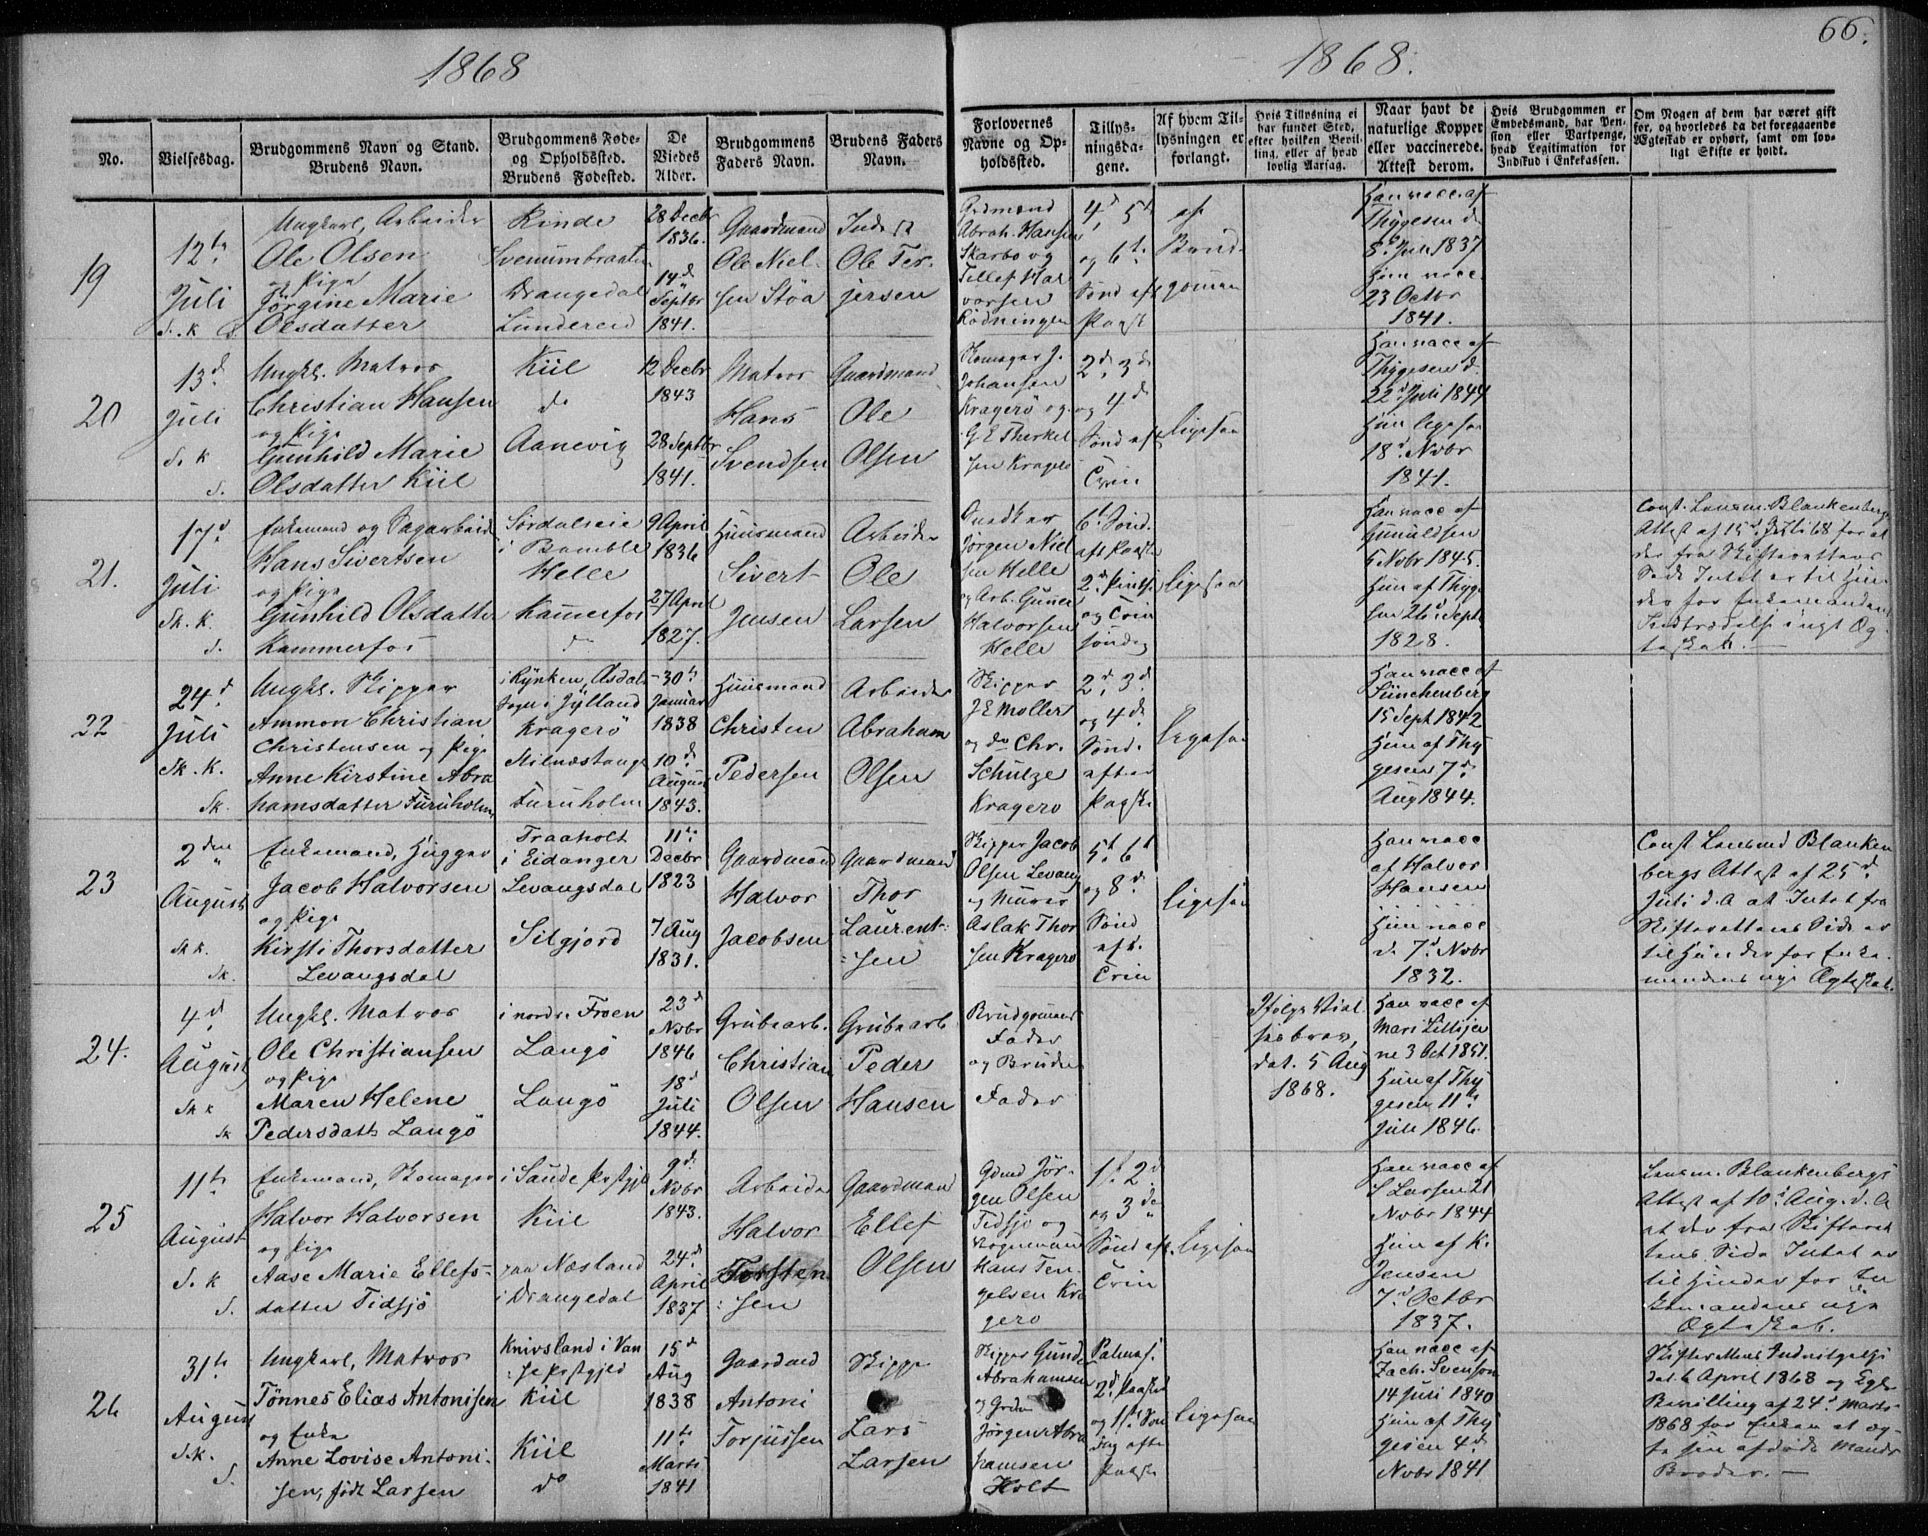 1868
1868.
66.
No.
Vielsesdag.
Brudgommens Navn og Stand.
Brudens Navn.
Brudgommens Føde-
og Opholdssted.
Brudens Fødested.
De
Viedes
Alder.
Brudgommens
Faders Navn.
Brudens Faders
Navn.
Forlovernes
Navne og Op-
holdssted.
Tillys-
ningsda-
gene.
Af hvem Til-
lysningen er
forlangt.
Hvis Tillysning ei
har fundet Sted,
efter hvilken Bevil-
ling, eller af hvad
lovlig Aarsag.
Naar havt de
naturlige Kopper
eller vaccinerede.
Attest derom.
Hvis Brudgommen er
Embedsmand, har Pen-
sion eller Vartpenge,
hvad Legitimation for
Indskud i Enkekassen.
Om Nogen af dem har været gift
før, og hvorledes da det foregaaende
Ægteskab er ophørt, samt om lov-
ligt Skifte er holdt.
19
12te
Juli
Ungkarl, Arbeider
Ole Olsen
og Pige
Jörgine Marie
Olsdatter
Rinde
Svenumbraaten
Drangedal
Lundereid
28 Decbr
1836.
14de
Septbr
1841.
Gaardmand
Ole Niel-
sen Stöa
Ole Ter-
jersen
Grdmænd
Abrah. Hansen
Skarbo og
Tellef Hal
vorsen
Rödningen
4d, 5te
og 6te
Sönd aft
Paaske
af
Brud-
gommen
Han vacc. af
Thygesen d
8d Juli 1837
Hun vacc.
23 Octbr
1841.
20
13d
Juli
S. K
S.
Ungkl. Matros
Christian Hansen
og Pige
Gunhild Marie
Olsdatter Kiil
Kiil
do
Aanevig
12 Decbr
1843
28 Septbr
1841.
Matros
Hans
Svendsen
Gaardmand
Ole
Olsen
Skomager J.
Johansen
Kragerö og
G E Therkel
sen Kragerö
2d, 3de
og 4de
Sönd aft
Trin
ligesaa
Han vacc af
Thygesen d.
22d Juli 1844
Hun ligesaa
18d Novbr
1841.
21.
17d
Juli
Sk. K.
S.
Enkemand og Sagarbeid
Hans Sivertsen
og Pige
Gunhild Olsdatter
Kammerfos
i Bamble
Helle
Kamerfos
do
9 April
1836
27 April
1827.
Huusmand
Sivert
Jensen
Arbeider
Ole
Larsen
Jörgen Niel
sen Helle
og Arb. Gunner
Halvorsen
Helle
6te Sönd.
aft Paaske
2d Pintse
og Trin
söndag
ligesaa
Han vacc af
Gunuldsen
5 Novbr 1845.
Hun af Thyge
sen 26d Septb
1828.
Const. Lensm. Blankenbergs
Attest af 15d Juli 68 for at
der fra Skifterettens
Side Intet er til Hin-
der for Enkemandens
Indtrædelse i nyt Æg-
teskab. —
22
24d
Juli
Sk. K.
Sk.
Ungkl. Skipper
Ammon Christian
Christensen og Pige
Anne Kirstine Abra
hamsdatter Furuholmen
i Rynken, Asdals
Sogn i Jylland
Kragerö
Furuholm
30te
Januar
1838
10de
August
1843.
Huusmand
Christen
Pedersen
Arbeider
Abraham
Olsen
Skipper
J E Moller
og do Chr.
Schulze
Kragero
2d, 3d
og 4de
Sönd.
efter
Paaske
ligesaa
Han vacc af
Sünchenberg
15 Sept 1842
Hun af Thy
gesen 7d
Aug 1844.
23
2den
August
Sk K.
Sk.
Enkemand, Hugger
Jacob Halvorsen
og Pige
Kirsti Thorsdatter
Levangsdal
Traaholt
i Eidanger
Levangsdal
Silgjord
11te
Decbr
1823
7 Aug
1831.
Gaardmand
Halvor
Jacobsen
Gaardmand
Thor
Laurent-
sen
Skipper Jacob
Olsen Levang
og Murer
Aslak Thor
sen Kragerö
5te, 6te
og 8de
Sönd
aft.
Trin
ligesaa
Han vacc
af Halvor
Hansen
Hun vacc
d. 7d Novbr
1832.
Const Lensmd Blanken
bergs Attest af 25d
Juli d. A at Intet fra
Skifterettens Side er
til Hinder for Enke-
mandens nye Ægteskab.
24.
4d
August
Sk K
Sk
Ungkl. Matros
Ole Christiansen
og Pige
Maren Helene
Pedersdattr Langö
i nordre Froen
Langö
Langö
23d
Novbr
1846
18d
Juli
1844.
Grubearb.
Christian
Olsen
Grubearb
Peder
Hansen
Brudgommens
Fader
og Brudens
Fader
Ifölge Viel-
sesbrev,
dat. 5 Aug
1868.
Han vacc af
Mari Lillejer
ne 3 Oct 1851.
Hun af Thy
gesen 11te
Juli 1846.
25
11te
August
S. K
S.
Enkemand, Skomager
Halvor Halvorsen
og Pige
Aase Marie Ellefs-
datter Tidsjö
i Saude Prstgjld
Kiil
paa Næsland
i Drangedal
9d
Novbr
1843.
24d
April
1837
Arbeider
Halvor
Torsten
sen
Gaardmand
Ellef
Olsen
Grdmd Jör-
gen Olsen
Tidsjö og
Hans Ten-
gelsen Kra
gero
1ste 2d
og 3de
Sönd aft.
Trin
ligesaa
Han vacc af
S Larsen 21
Novbr 1844
Hun af K.
Jensen
7d Octbr
1837.
Lensm. Blankenbergs
Attest af 10d Aug. d. A
at der fra Skifteret
tens Side Intet er
til Hinder for En
kemandens nye
Ægteskab.
26
31te
August
S. K.
S.
Ungkarl, Matros
Tönnes Elias Antonisen
og Enke
Anne Lovise Antoni-
sen, född Larsen
Knivsland i Van
se Prstgjeld
Kiil
Kiil
do
15d
Aug
1838
11te
Marts
1841
Gaardmd
Antoni
Torjussen
Skippr
Lars
Larsen
Skipper Gunder
Abrahamsen
Jörgen Abra
hamsen
Holt
Palmes.
2d Paaske
og 1ste Sön
dag efter
Paaske
ligesaa
Han vacc af
Zach. Svenson
14 Juli 1840
Hun af Thy
gesen 4de
Novbr 1841
dat. 6 April 1868 og Kgl.
Bevilling af 24d Marts
1868 for Enken at æg-
te sin afdöde Mands
Broder. —